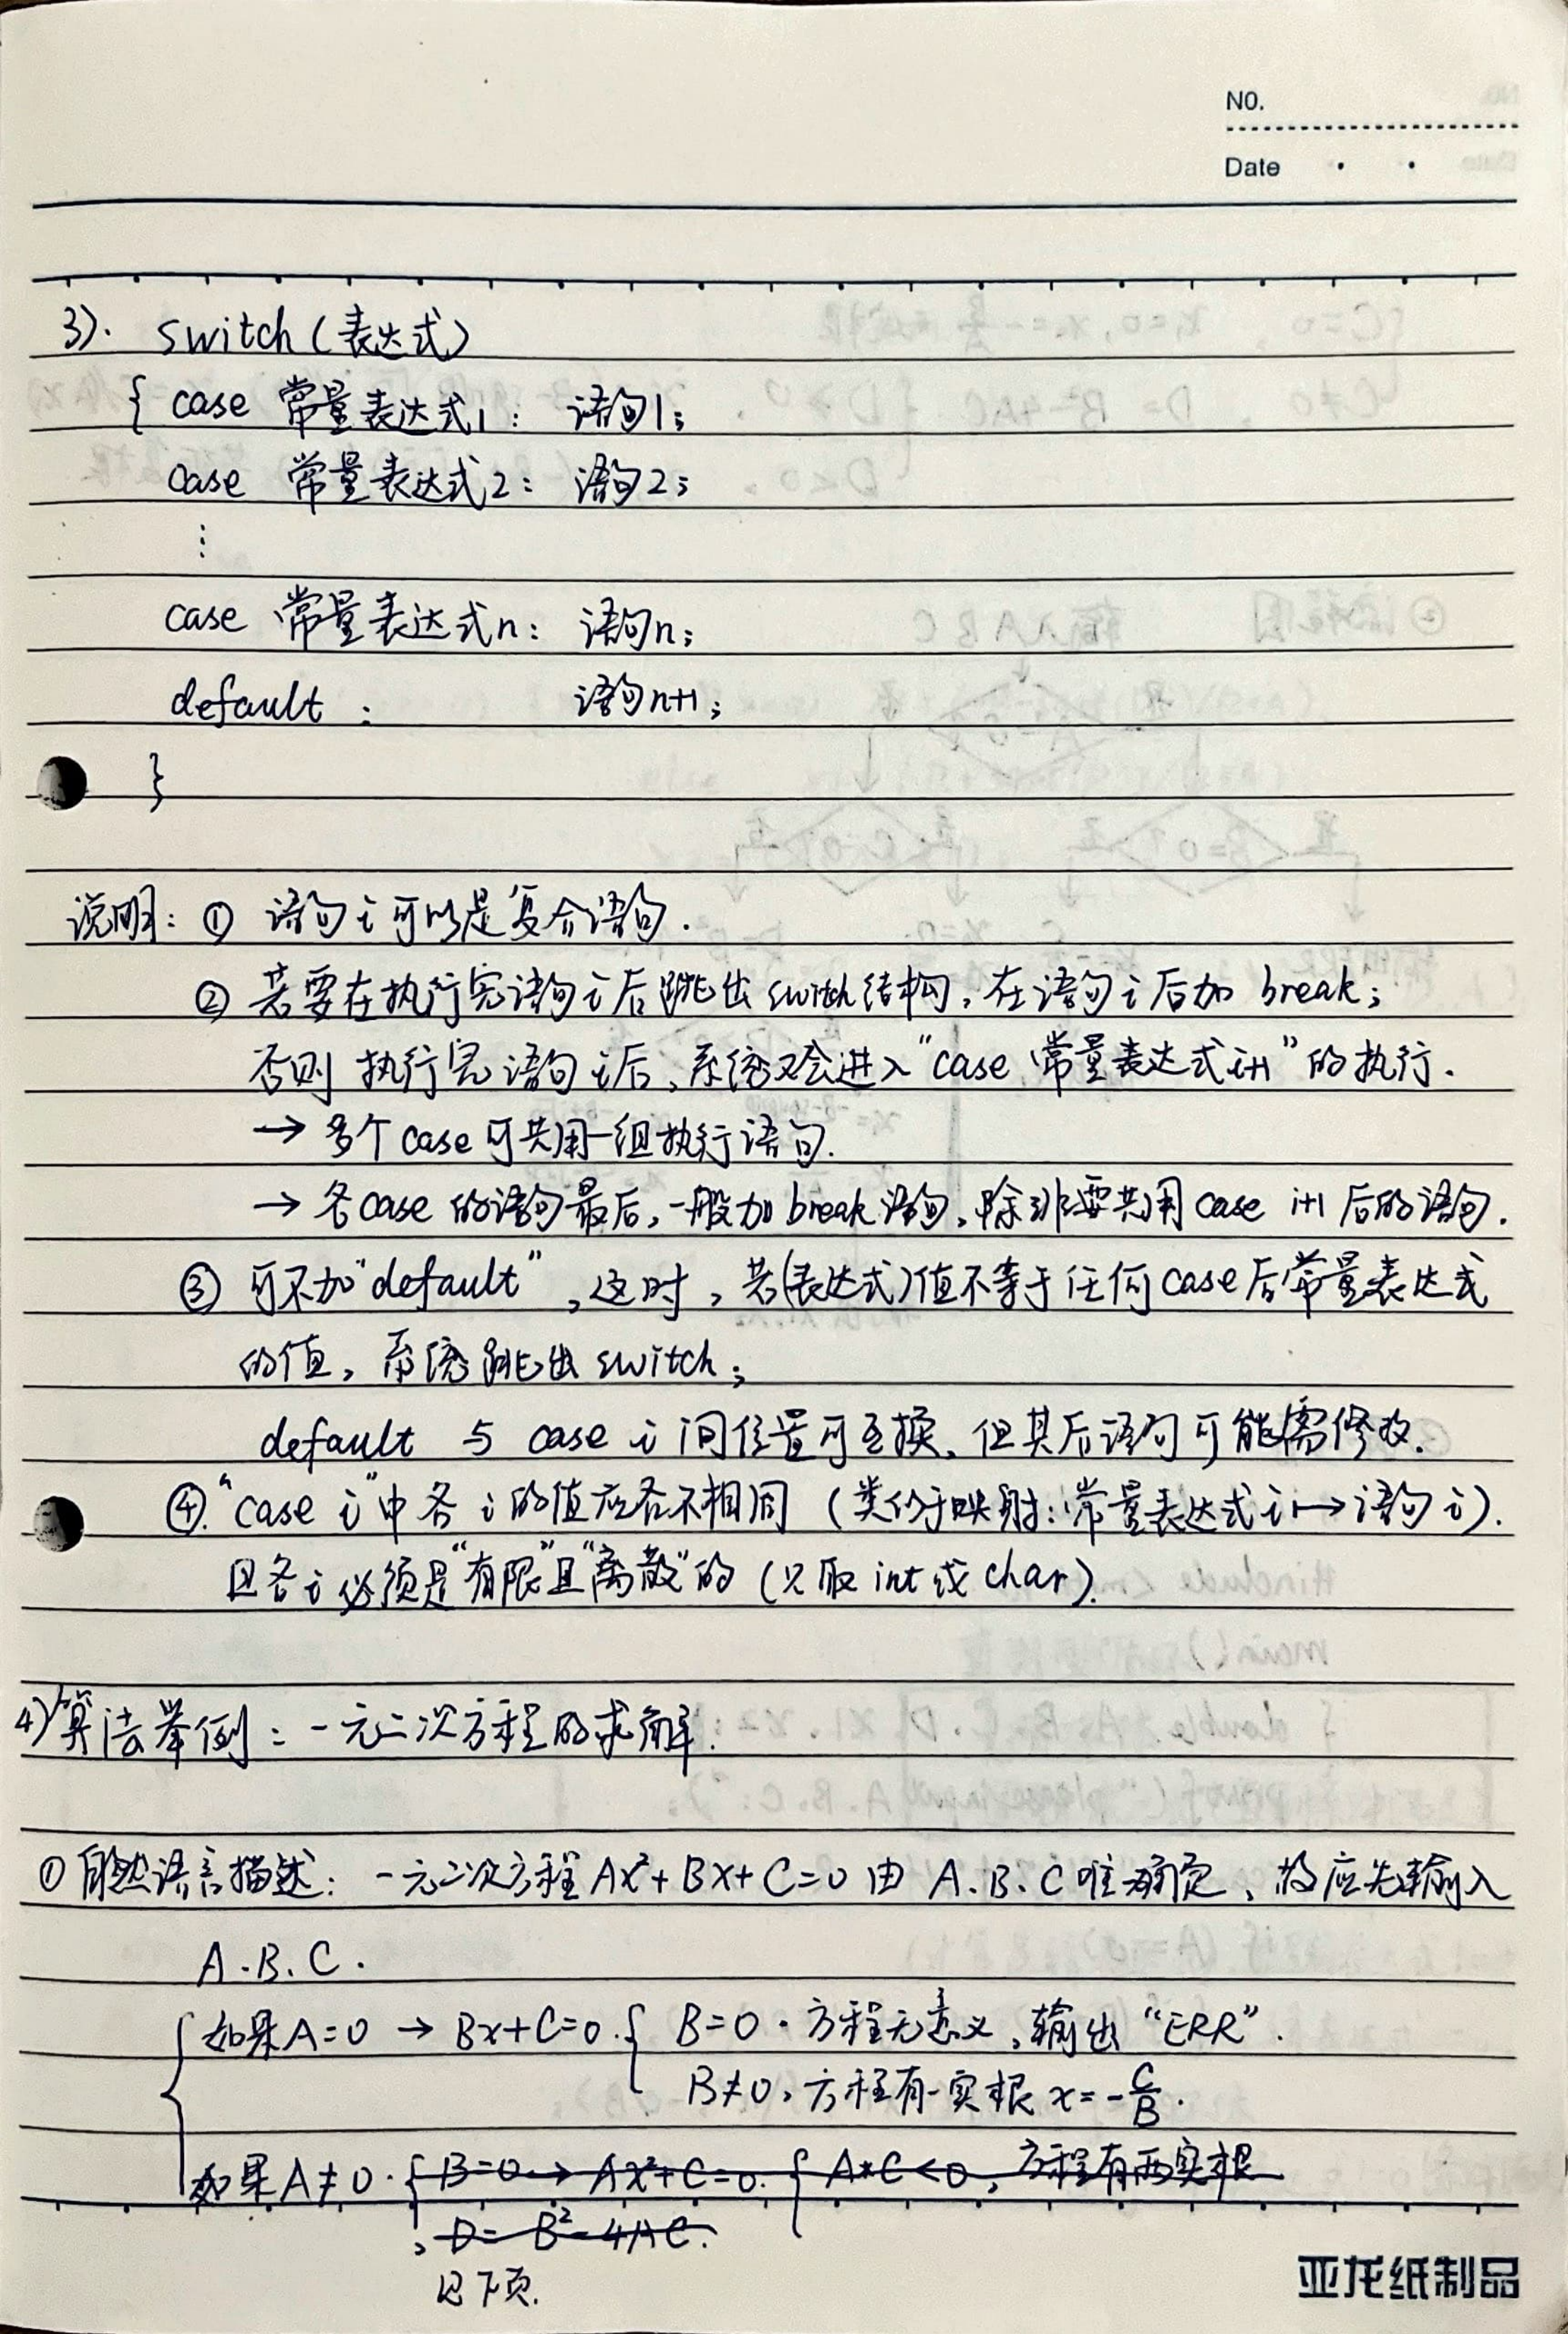 NO.
Date
3). switch(表达式)
{ case 常量表达式1: 语句1;
case 常量表达式2: 语句2;
⋮
case 常量表达式n: 语句n;
default : 语句n+1;
}
说明: ① 语句i可以是复合语句.
② 若要在执行完语句i后跳出switch结构,在语句i后加 break;
否则 执行完语句i后,系统又会进入"case 常量表达式i+1"的执行.
→ 多个case可共用一组执行语句.
→ 各case的语句最后,一般加break语句,除非要共用case i+1后的语句.
③ 可不加"default",这时,若(表达式)值不等于任何case后常量表达式
的值,系统跳出switch;
default 与 case i间位置可互换,但其后语句可能需修改.
④."case i"中各i的值应各不相同 (类似于映射:常量表达式i↦语句i).
且各i必须是"有限"且"离散"的(只取int或char).
4)算法举例: 一元二次方程的求解.
①自然语言描述: 一元二次方程Ax²+Bx+C=0由 A.B.C唯一确定,故应先输入
A.B.C.
{ 如果A=0 → Bx+C=0. { B=0. 方程无意义,输出"ERR".
B≠0,方程有一实根 x=-C/B.
如果A≠0. { B=0 → Ax²+C=0. { A*C<0,方程有两实根
, D= B²-4AC.
见下页.
亚龙纸制品